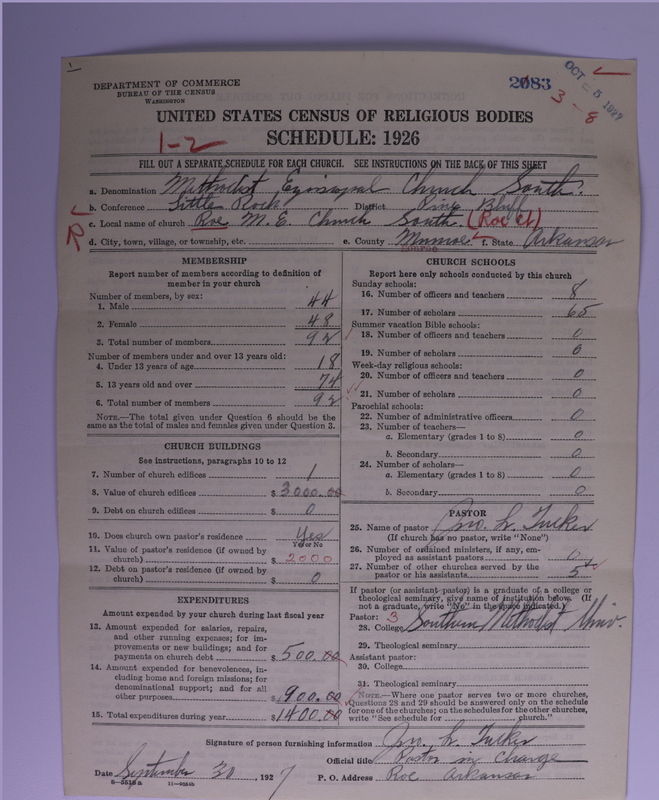 1
DEPARTMENT OF COMMERCE
BUREAU OF THE CENSUS
WASHINGTON
2083
OCT - 5 1927
3-8
UNITED STATES CENSUS OF RELIGIOUS BODIES
1-2
SCHEDULE: 1926
FILL OUT A SEPARATE SCHEDULE FOR EACH CHURCH. SEE INSTRUCTIONS ON THE BACK OF THIS SHEET
a. Denomination Methodist Episcopal Church South.
b. Conference Little Rock District Pine Bluff
R c. Local name of church Roe M. E. Church South. (Roe Ct.)
d. City, town, village, or township, etc. e. County Monroe f. State Arkansas
Monroe
MEMBERSHIP
Report number of members according to definition of
member in your church
Number of members, by sex:
1. Male 44
2. Female 48
3. Total number of members 92
Number of members under and over 13 years old:
4. Under 13 years of age 18
5. 13 years old and over 74
6. Total number of members 92
NOTE.—The total given under Question 6 should be the
same as the total of males and females given under Question 3.
CHURCH BUILDINGS
See instructions, paragraphs 10 to 12
7. Number of church edifices 1
8. Value of church edifices $ 3000.00
9. Debt on church edifices $ 0
10. Does church own pastor's residence Yes
Yes or No
11. Value of pastor's residence (if owned by
church) $ 2000
12. Debt on pastor's residence (if owned by
church) $ 0
EXPENDITURES
Amount expended by your church during last fiscal year
13. Amount expended for salaries, repairs,
and other running expenses; for im-
provements or new buildings; and for
payments on church debt $ 500.00
14. Amount expended for benevolences, in-
cluding home and foreign missions; for
denominational support; and for all
other purposes $ 900.00
15. Total expenditures during year $ 1400.00
CHURCH SCHOOLS
Report here only schools conducted by this church
Sunday schools:
16. Number of officers and teachers 8
17. Number of scholars 65
Summer vacation Bible schools:
18. Number of officers and teachers 0
19. Number of scholars 0
Week-day religious schools:
20. Number of officers and teachers 0
21. Number of scholars 0
Parochial schools:
22. Number of administrative officers 0
23. Number of teachers—
a. Elementary (grades 1 to 8) 0
b. Secondary 0
24. Number of scholars—
a. Elementary (grades 1 to 8) 0
b. Secondary 0
PASTOR
25. Name of pastor Jno. L. Tucker
(If church has no pastor, write "None")
26. Number of ordained ministers, if any, em-
ployed as assistant pastors 0
27. Number of other churches served by the
pastor or his assistants 5
If pastor (or assistant pastor) is a graduate of a college or
theological seminary, give name of institution below. (If
not a graduate, write "No" in the space indicated.)
Pastor: 3
28. College Southern Methodist Univ.
29. Theological seminary
Assistant pastor:
30. College
31. Theological seminary
NOTE.—Where one pastor serves two or more churches,
Questions 28 and 29 should be answered only on the schedule
for one of the churches; on the schedules for the other churches,
write "See schedule for church."
Signature of person furnishing information Jno. L. Tucker
Official title Pastor in Charge
Date September 30, 1927 P. O. Address Roe Arkansas